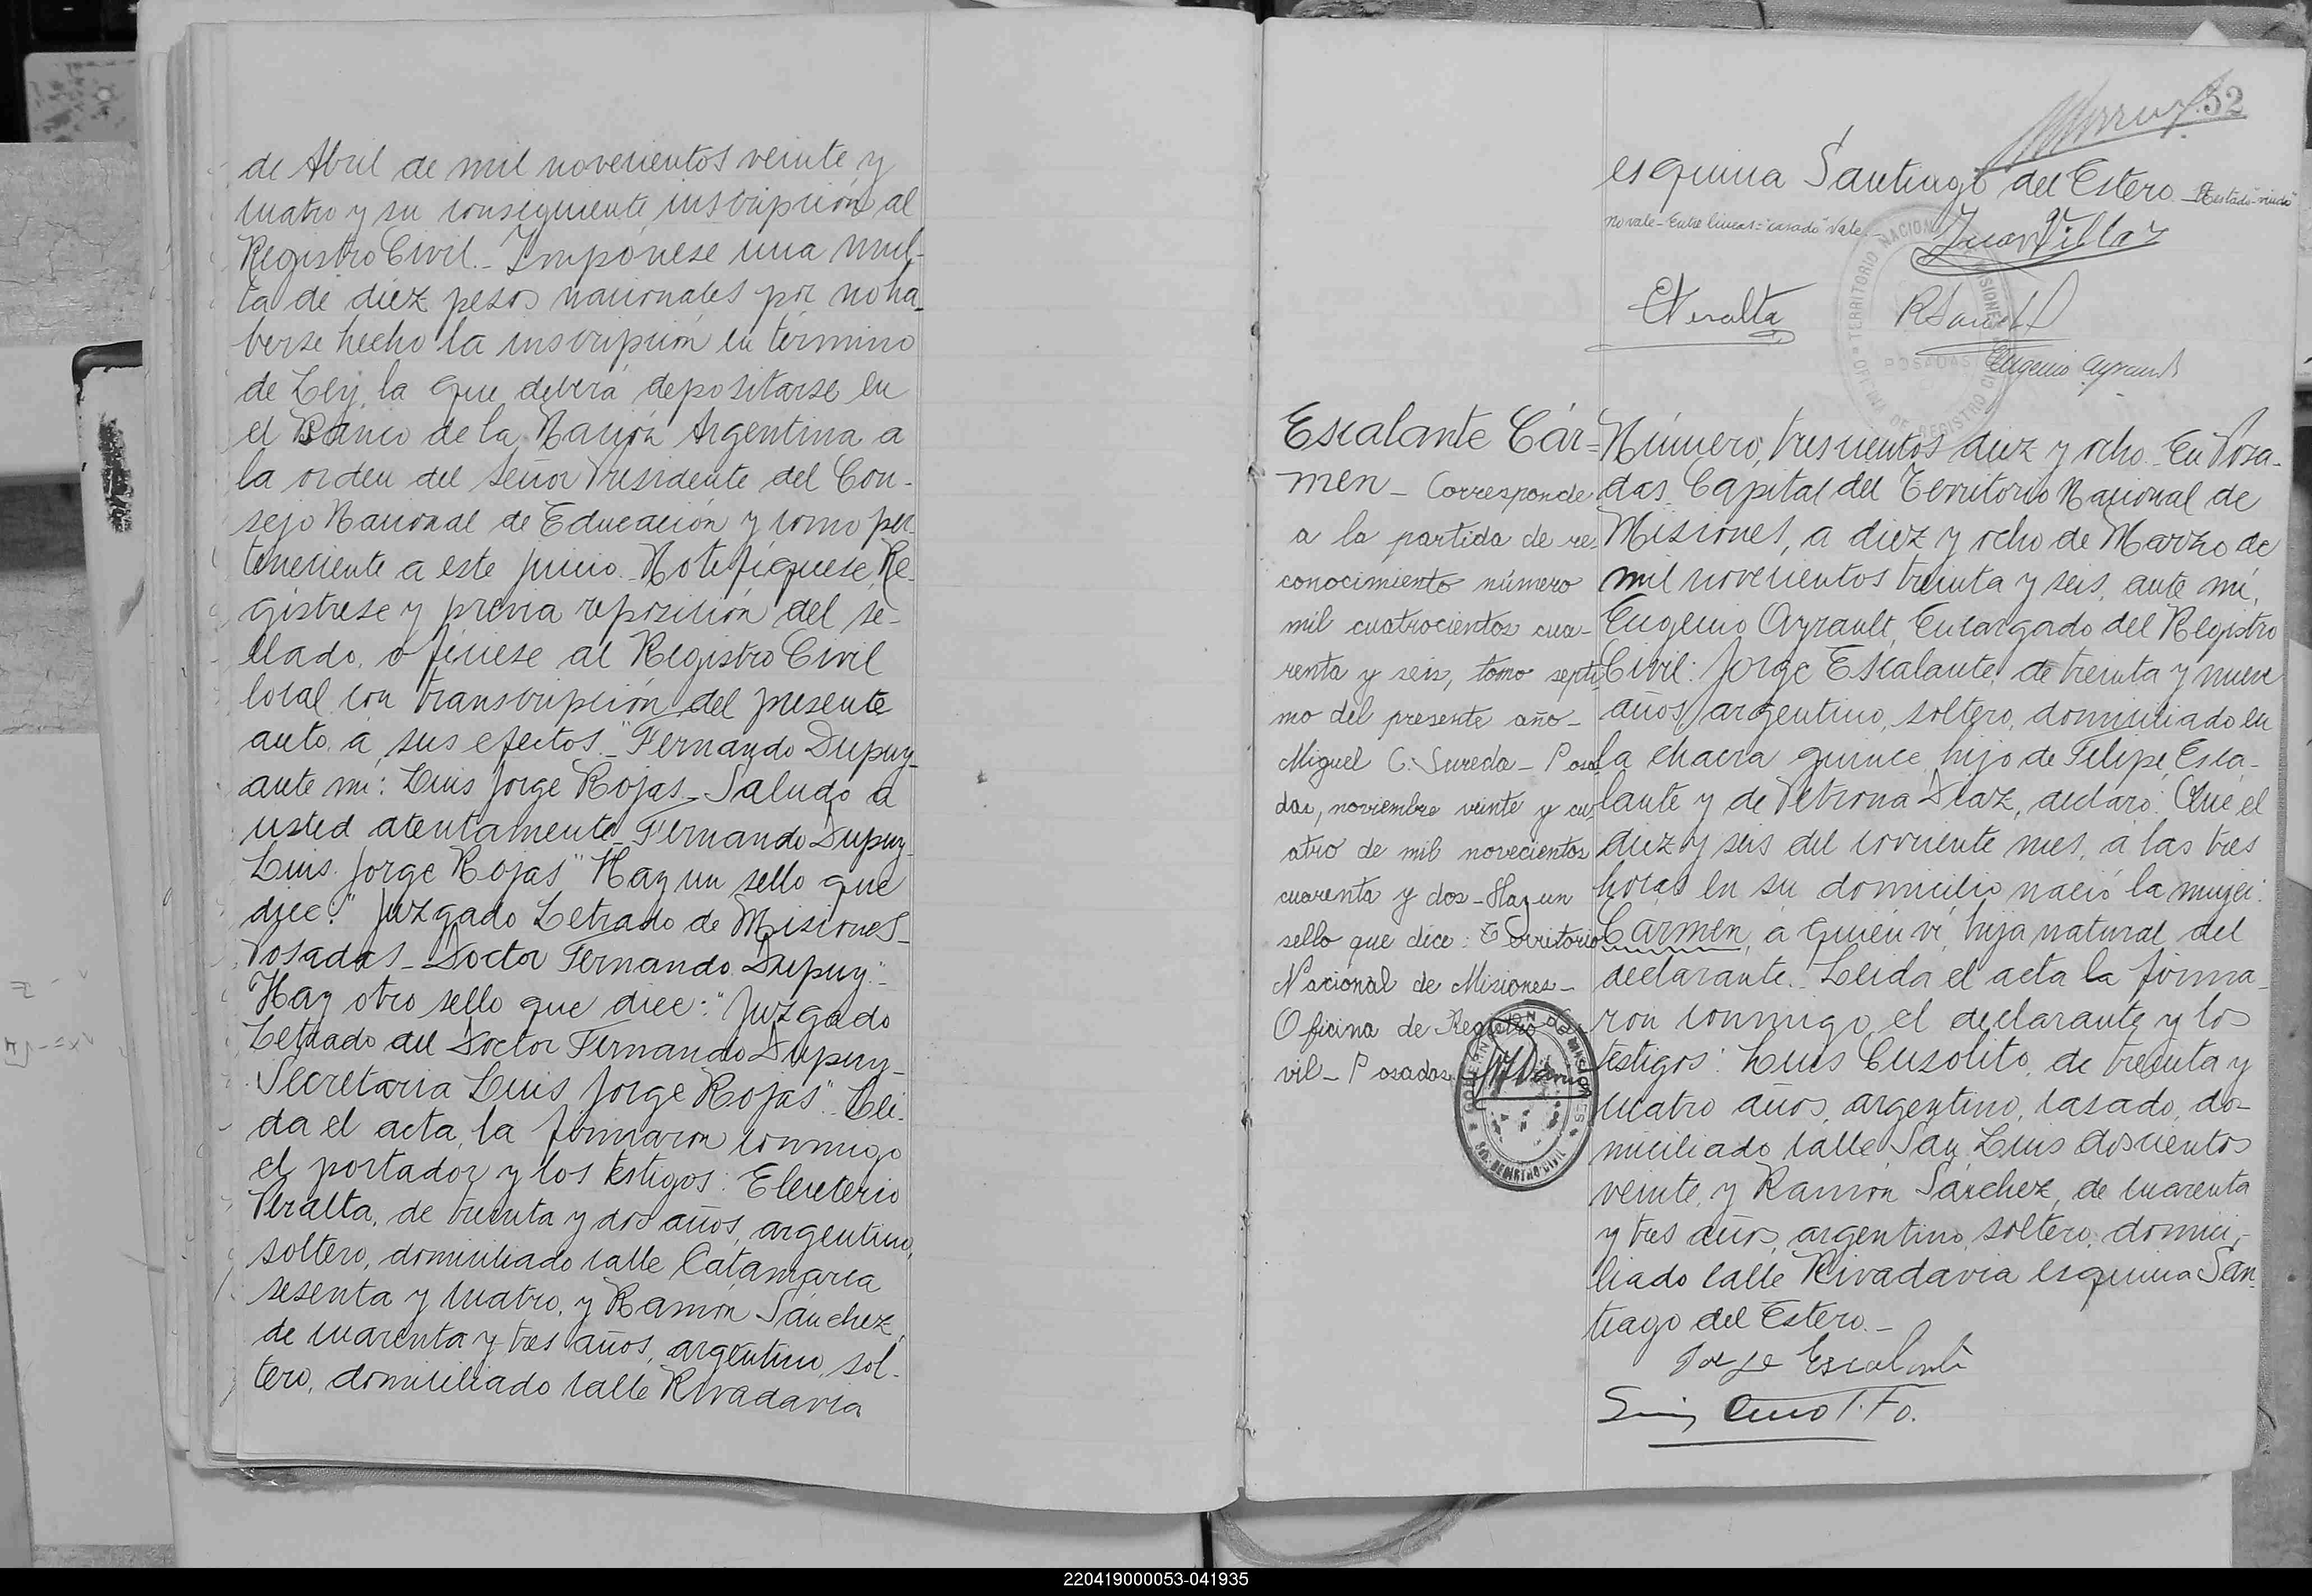 de Abril de mil novecientos veinte y
cuatro y su consiguiente inscripción al
Registro Civil._ Impónese una mul-
ta de diez pesos nacionales por no ha_
berse hecho la inscripción en término
de Ley, la que deberá depositarse en
el Banco de la Nación Argentina a
la orden del señor Presidente del Con-
sejo Nacional de Educación y como per-
teneciente a este juicio._ Notifíquese, Re-
gístrese y previa reposición del se-
llado, ofíciese al Registro Civil
local con transcripción del presente
auto, a sus efectos._ "Fernando Dupuy_
ante mi: Luis Jorge Rojas._ Saludo a
usted atentamente_ Fernando Dupuy_
Luis Jorge Rojas" Hay un sello que
dice: "Juzgado Letrado de Misiones_
Posadas_ Doctor Fernando Dupuy"._
Hay otro sello que dice: "Juzgado
Letrado del Doctor Fernando Dupuy_
Secretaria Luis Jorge Rojas"._ Leí-
da el acta, la firmaron conmigo
el portador y los testigos: Eleuterio
Peralta, de treinta y dos años, argentino,
soltero, domiciliado calle Catamarca
sesenta y cuatro, y Ramón Sánchez,
de cuarenta y tres años, argentino, sol-
tero, domiciliado calle Rivadavia
52
esquina Santiago del Estero._ Testado-viudo"
no vale_Entre lineas="casado" Vale._
Juan Villar
E Peralta
R Sanch
Eugenio Ayrault
TERRITORIO NACIONAL DE MISIONES
OFICINA DE REGISTRO CIVIL
POSADAS
Escalante Cár=
men_ Corresponde
a la partida de re-
conocimiento número
mil cuatrocientos cua-
renta y seis, tomo septi-
mo del presente año_
Miguel C. Sureda_ Posa
das, noviembre veinte y cu-
atro de mil novecientos
cuarenta y dos_Hay un
sello que dice: Territorio
Nacional de Misiones_
Oficina de Registro Ci-
vil_ Posadas
GOBERNACION DE MISIONES
REGISTRO CIVIL
Número, trescientos diez y ocho._En Posa-
das, Capital del Territorio Nacional de
Misiones, a diez y ocho de Marzo de
mil novecientos treinta y seis, ante mí,
Eugenio Ayrault, Encargado del Registro
Civil: Jorge Escalante, de treinta y nueve
años, argentino, soltero, domiciliado en
la chacra quince, hijo de Felipe Esca-
lante y de Petrona Diaz, declaró: Que el
diez y seis del corriente mes, a las tres
horas en su domicilio nació la mujer:
Carmen, a quien ví, hija natural del
declarante._ Leída el acta la firma_
ron conmigo el declarante y los
testigos: Luis Cusolito, de treinta y
cuatro años, argentino, casado, do-
miciliado calle San Luis doscientos
veinte, y Ramón Sánchez, de cuarenta
y tres años, argentino, soltero, domici-
liado calle Rivadavia esquina San
tiago del Estero._
Jorge Escalante
220419000053-041935